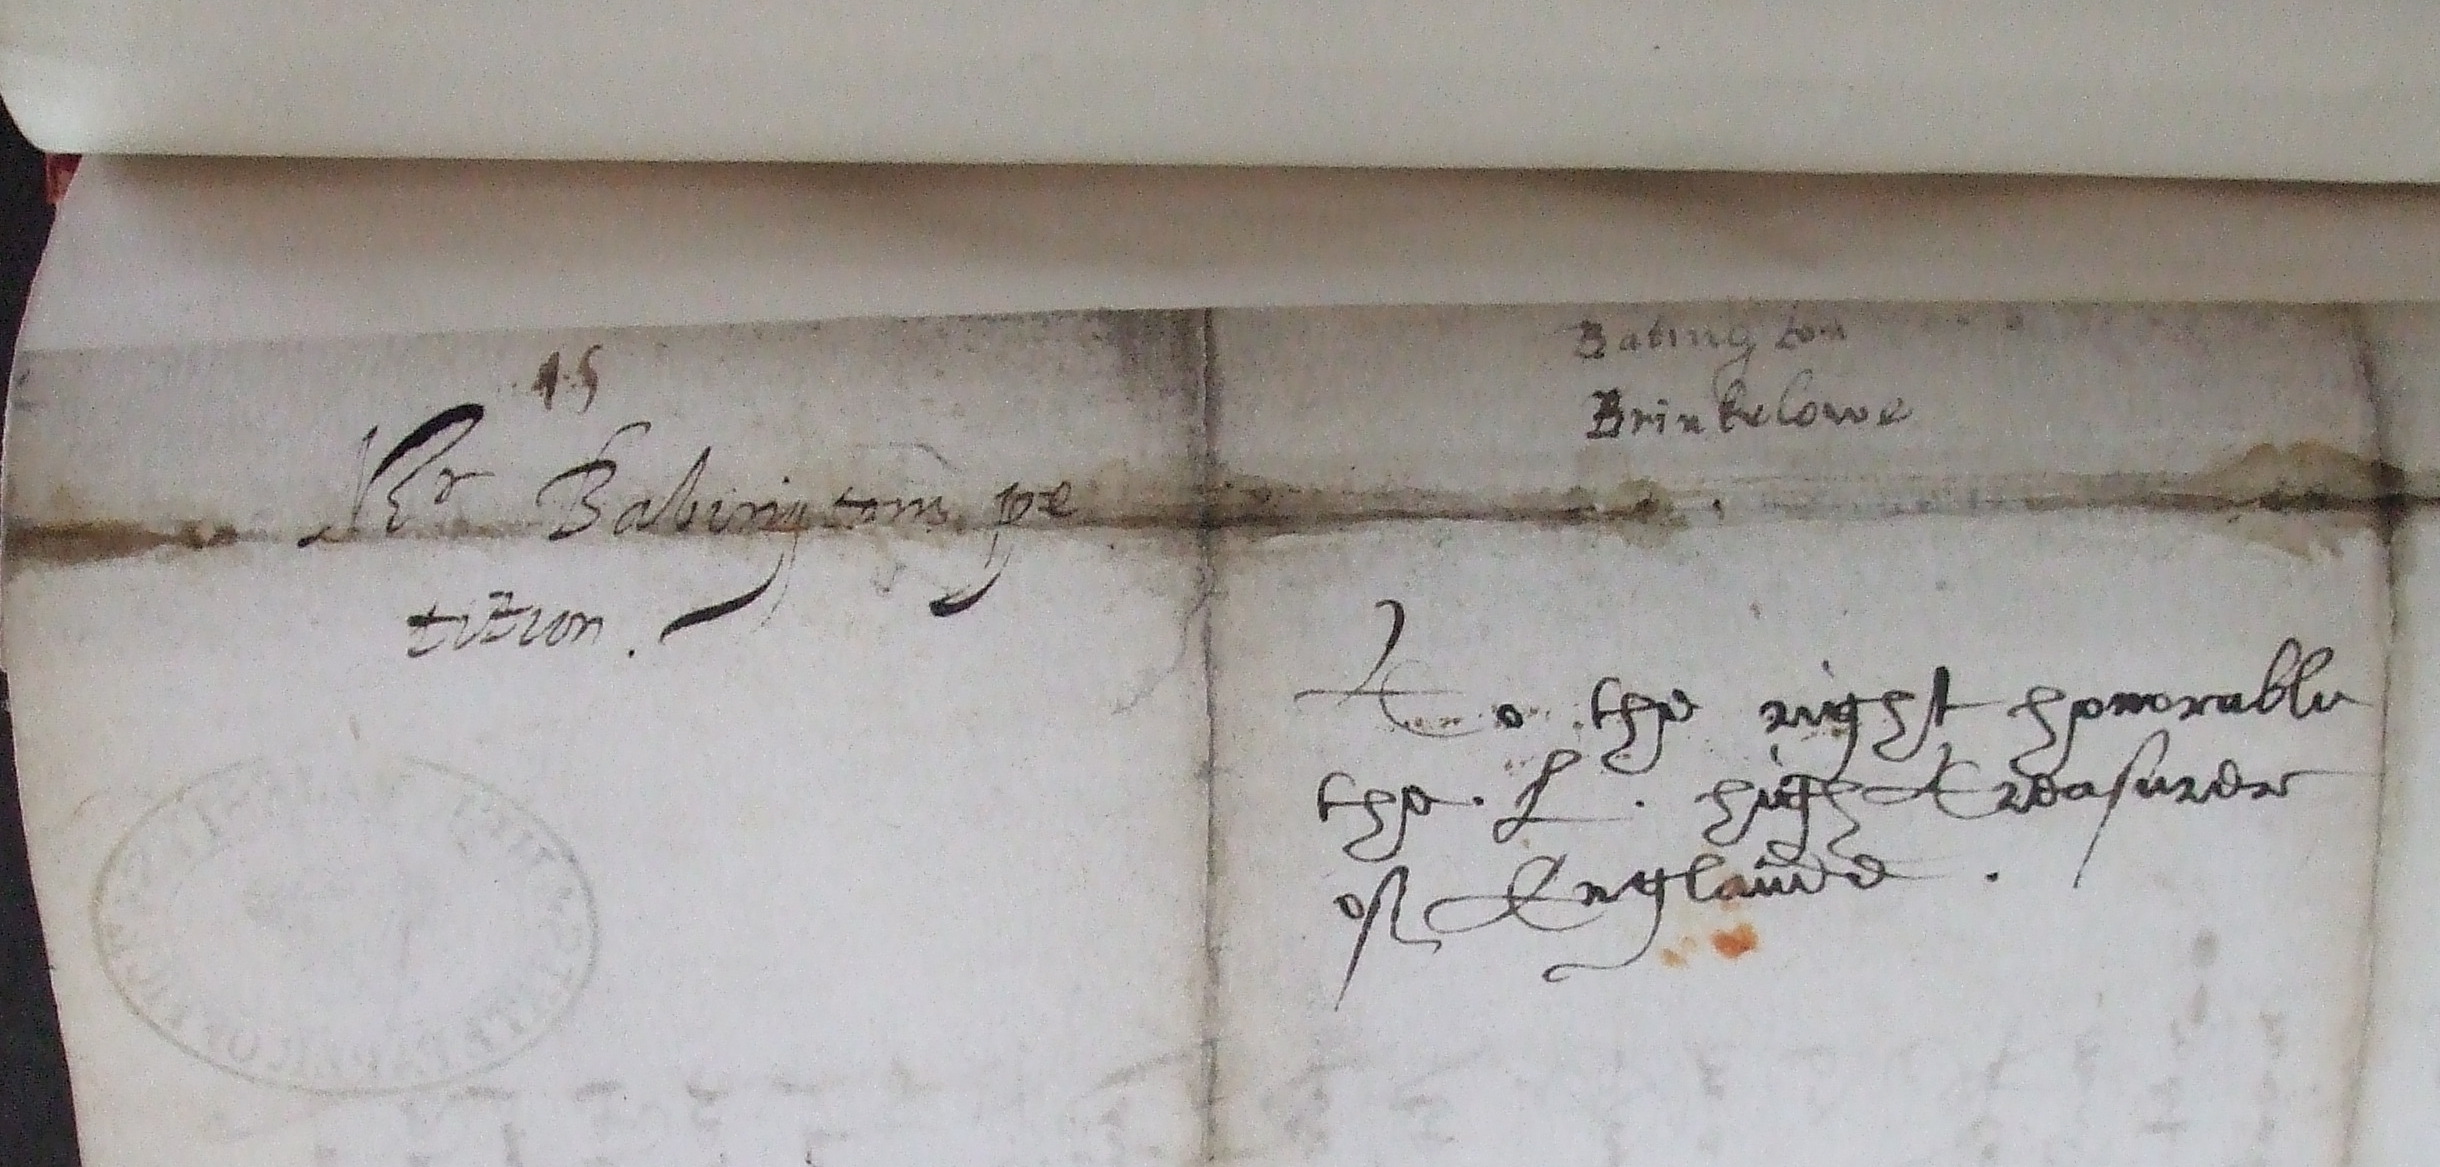 15
Mr Babingtons pe
tition.
Babington
Brinkelowe
To the right honorable
the . L . high Treasurer
of Englande .